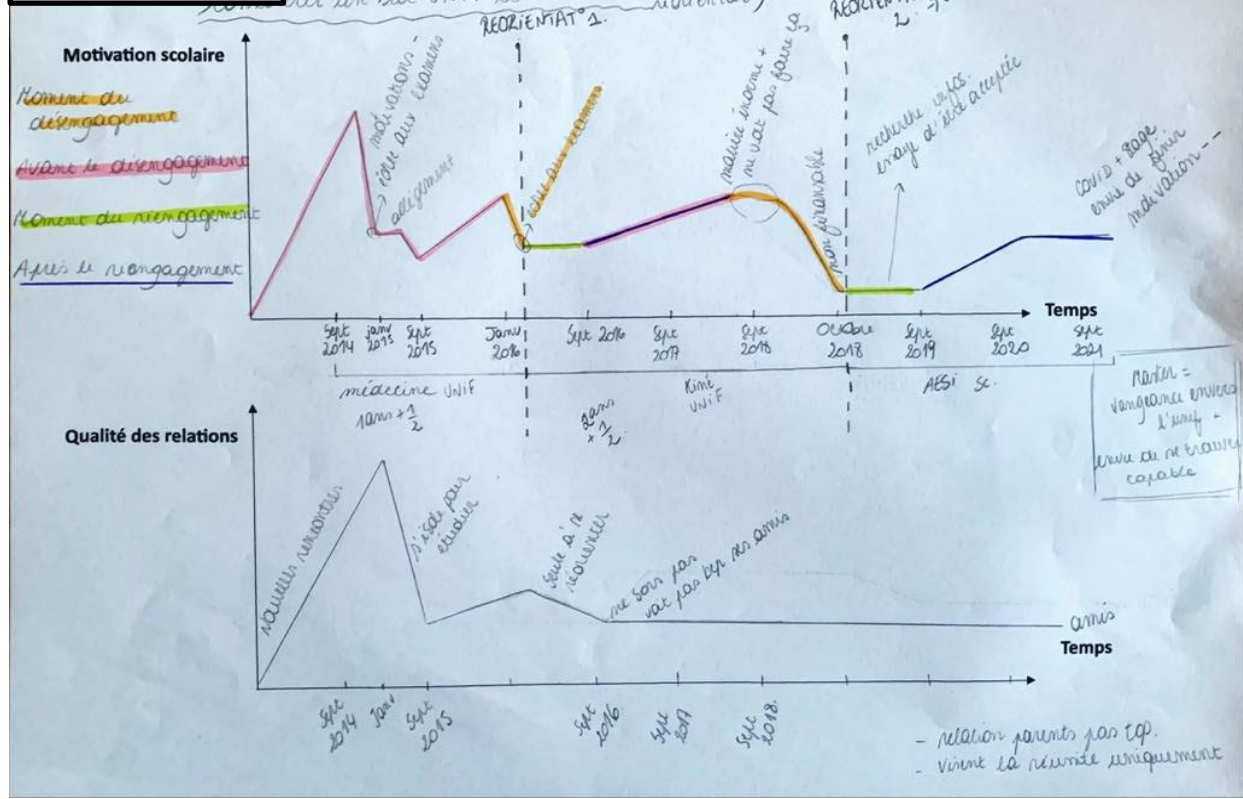 REORIENTAT° 1.
2.
Motivation scolaire
Moment du
désengagement
Avant le désengagement
Moment du réengagement
Après le réengagement
motivations -
échec aux examens
allégement
échec aux examens
matière énorme +
ne voit pas faire ça
non finançable
recherche infos.
envie d'être acceptée
COVID + stage
envie de finir
motivation --
Temps
Sept 2014
janv 2015
Sept 2015
Janv 2016
Sept 2016
Sept 2017
Sept 2018
Octobre 2018
Sept 2019
Sept 2020
Sept 2021
médecine UNIF
1ans + 1/2
Kiné
UNIF
2ans + 1/2.
AESI Sc.
Master =
vangeance envers
l'unif +
envie de se trouver
capable
Qualité des relations
Nouvelles rencontres
s'isole pour
étudier
seule à se
réorienter
ne sors pas
voit pas bcp ses amis
amis
Temps
Sept 2014
Janv
Sept 2015
Sept 2016.
Sept 2017
Sept 2018.
- relation parents pas top.
- visent la réussite uniquement